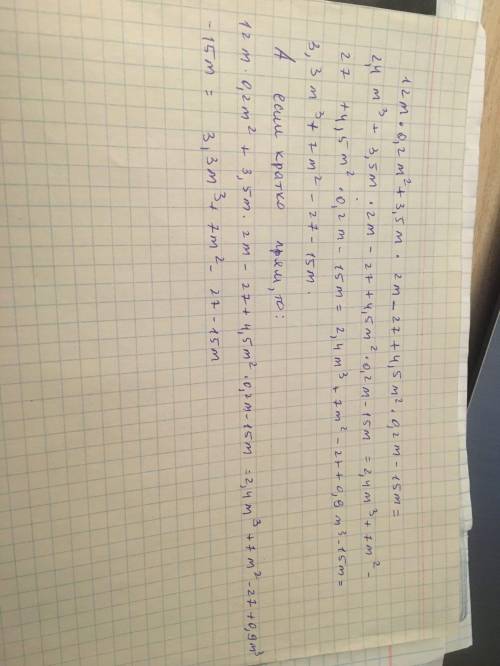 12m·0,2m²+3,5m·2m-27+4,5m²·0,2m-15m=
2,4m³+3,5m·2m-27+4,5m²·0,2m-15m=2,4m³+7m²-
27+4,5m²·0,2m-15m=2,4m³+7m²-27+0,9m³-15m=
3,3m³+7m²-27-15m.
А если кратко
12m·0,2m²+3,5m·2m-27+4,5m²·0,2m-15m=2,4m³+7m²-27+0,9m³
-15m=3,3m³+7m²-27-15m